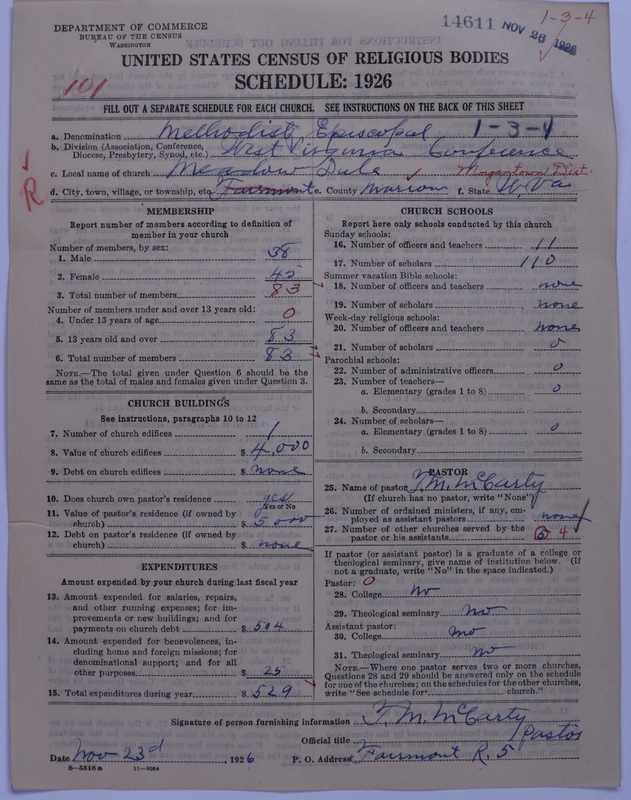 DEPARTMENT OF COMMERCE
BUREAU OF THE CENSUS
WASHINGTON
14611 NOV 26 1926
1-3-4
UNITED STATES CENSUS OF RELIGIOUS BODIES
SCHEDULE: 1926
101
FILL OUT A SEPARATE SCHEDULE FOR EACH CHURCH. SEE INSTRUCTIONS ON THE BACK OF THIS SHEET
a. Denomination Methodist Episcopal 1-3-4
b. Division (Association, Conference, Diocese, Presbytery, Synod, etc.) West Virginia Conference
c. Local name of church Meadow Dale Morgantown Dist.
R
d. City, town, village, or township, etc. Fairmont e. County Marion f. State W. Va
MEMBERSHIP
Report number of members according to definition of
member in your church
Number of members, by sex:
1. Male 38
2. Female 45
3. Total number of members 83
Number of members under and over 13 years old:
4. Under 13 years of age 0
5. 13 years old and over 83
6. Total number of members 83
NOTE.—The total given under Question 6 should be the
same as the total of males and females given under Question 3.
CHURCH BUILDINGS
See instructions, paragraphs 10 to 12
7. Number of church edifices 1
8. Value of church edifices $ 4,000
9. Debt on church edifices $ none
10. Does church own pastor's residence yes
Yes or No
11. Value of pastor's residence (if owned by
church) $ 5000
12. Debt on pastor's residence (if owned by
church) $ none
EXPENDITURES
Amount expended by your church during last fiscal year
13. Amount expended for salaries, repairs,
and other running expenses; for im-
provements or new buildings; and for
payments on church debt $ 504
14. Amount expended for benevolences, in-
cluding home and foreign missions; for
denominational support; and for all
other purposes $ 25
15. Total expenditures during year $ 529
CHURCH SCHOOLS
Report here only schools conducted by this church
Sunday schools:
16. Number of officers and teachers 11
17. Number of scholars 110
Summer vacation Bible schools:
18. Number of officers and teachers none
19. Number of scholars none
Week-day religious schools:
20. Number of officers and teachers none
21. Number of scholars 0
Parochial schools:
22. Number of administrative officers 0
23. Number of teachers—
a. Elementary (grades 1 to 8) 0
b. Secondary
24. Number of scholars—
a. Elementary (grades 1 to 8) 0
b. Secondary
PASTOR
25. Name of pastor T. M. McCarty
(If church has no pastor, write "None")
26. Number of ordained ministers, if any, em-
ployed as assistant pastors none
27. Number of other churches served by the
pastor or his assistants 4
If pastor (or assistant pastor) is a graduate of a college or
theological seminary, give name of institution below. (If
not a graduate, write "No" in the space indicated.)
Pastor: 0
28. College No
29. Theological seminary No
Assistant pastor:
30. College No
31. Theological seminary No
NOTE.—Where one pastor serves two or more churches,
Questions 28 and 29 should be answered only on the schedule
for one of the churches; on the schedules for the other churches,
write "See schedule for church."
Signature of person furnishing information T. M. McCarty
Official title Pastor
Date Nov 23d, 1926 P. O. Address Fairmont R. 5
8-5518a 11-9064